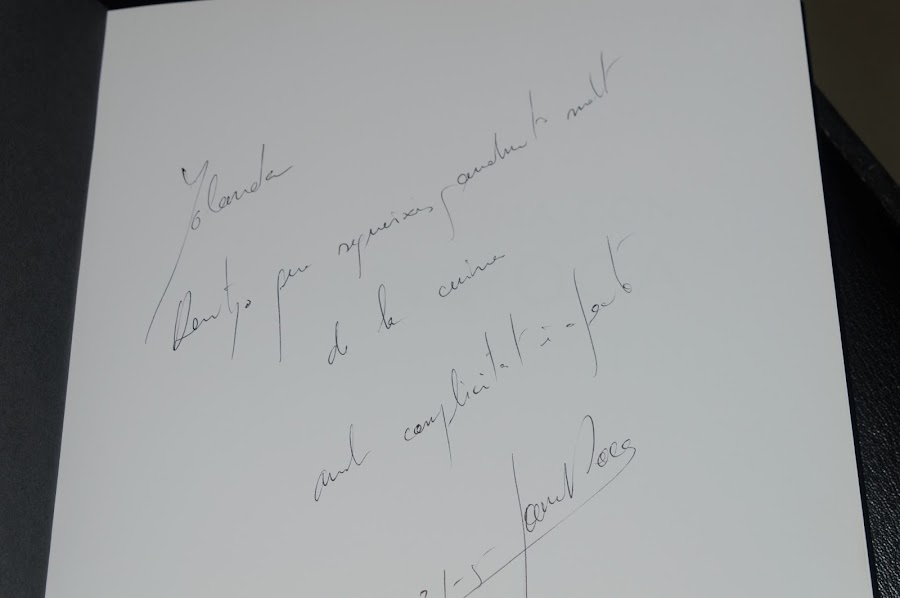 Yolanda
Desitjo que segueixis gaudint molt
de la cuina
amb complicitat i afecte
Joan Roca
21-5